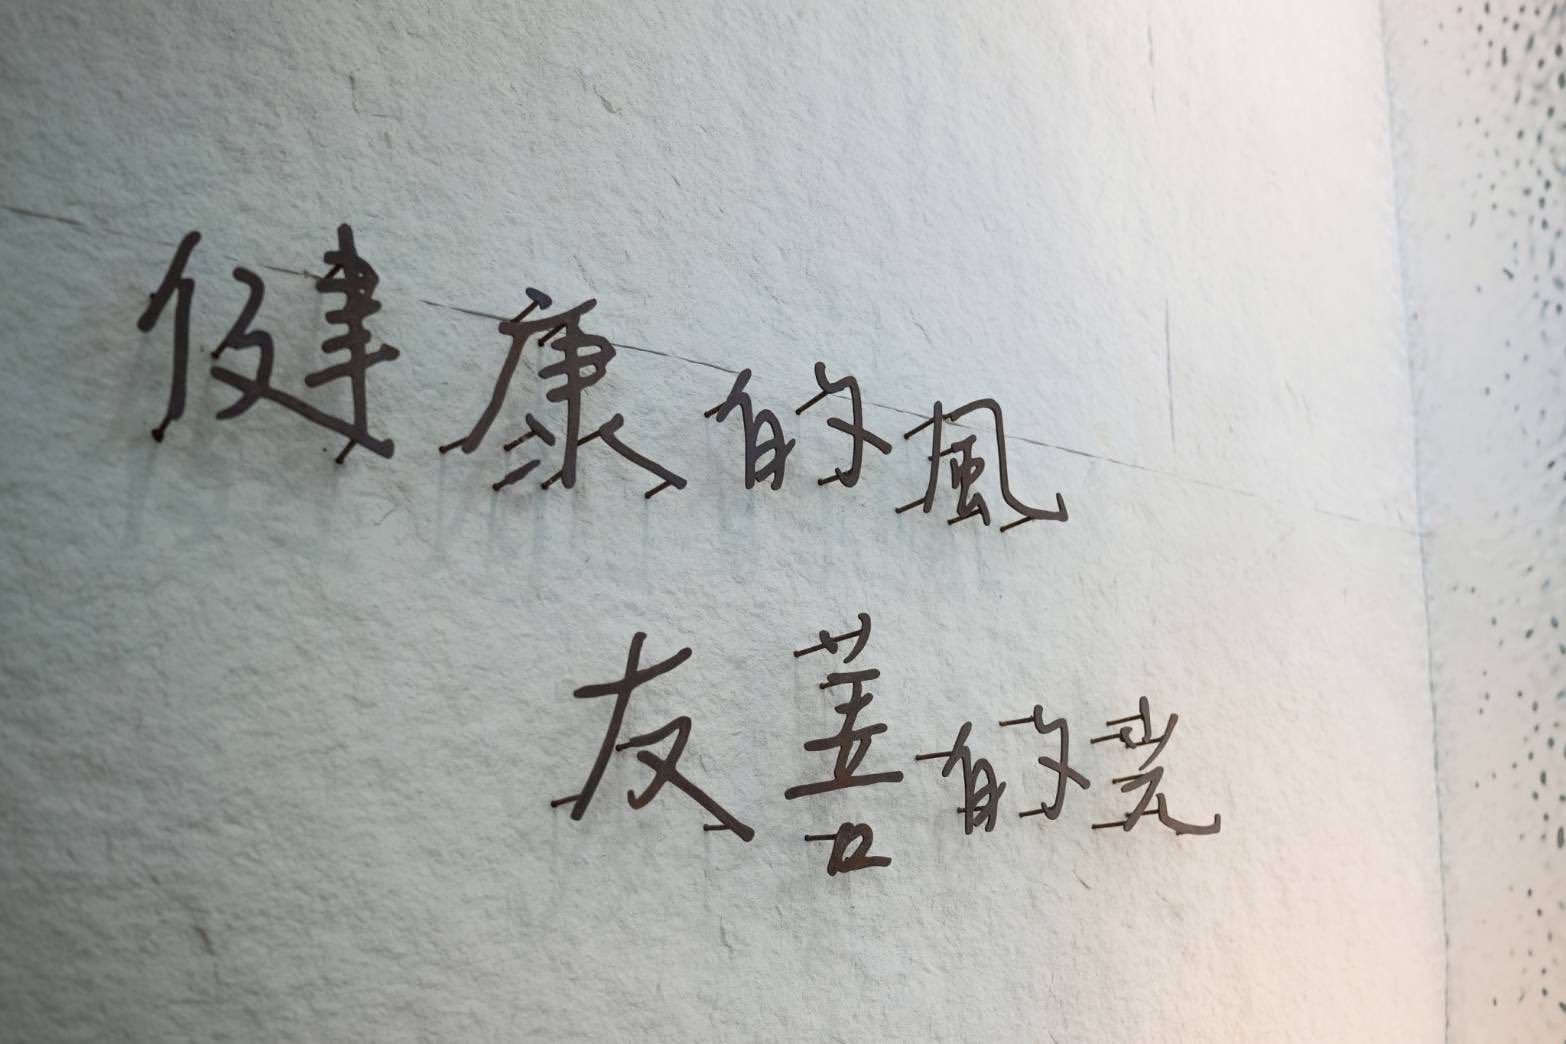 健康的風
友善的光